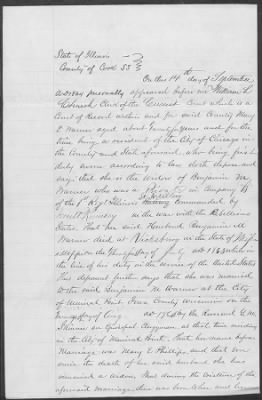 State of Illinois
County of Cook SS
On this 14th day of September
A.D. 1864 personally appeared before me William L
Church Clerk of the Circuit Court which is a
Court of Record within and for said County Mary
E Warner aged about years and for the
time being a resident of the City of Chicago in
the County and State aforesaid, who being first
duly sworn according to law doth depose and
says that she is the widow of Benjamin M.
Warner who was a in Company B
of the 1st Regt Illinois commanded by
in the war with the Rebellious
States. That her said Husband Benjamin M
Warner died at Vicksburg in the State of
on the of July AD 1863 while in
the line of his duty in the service of the United States
This deponent further says that she was married
to the said Benjamin M. Warner at the City
of Mineral Point Iowa County Wisconsin on the
day of Aug AD by the Reverend G. M.
Skinner an Episcopal Clergyman at that time residing
in the City of Mineral Point. That her name before
Marriage was Mary E Phillips and that ever
since the death of her said husband she has
remained a widow. That during the existence of the
aforesaid marriage there was born alive and